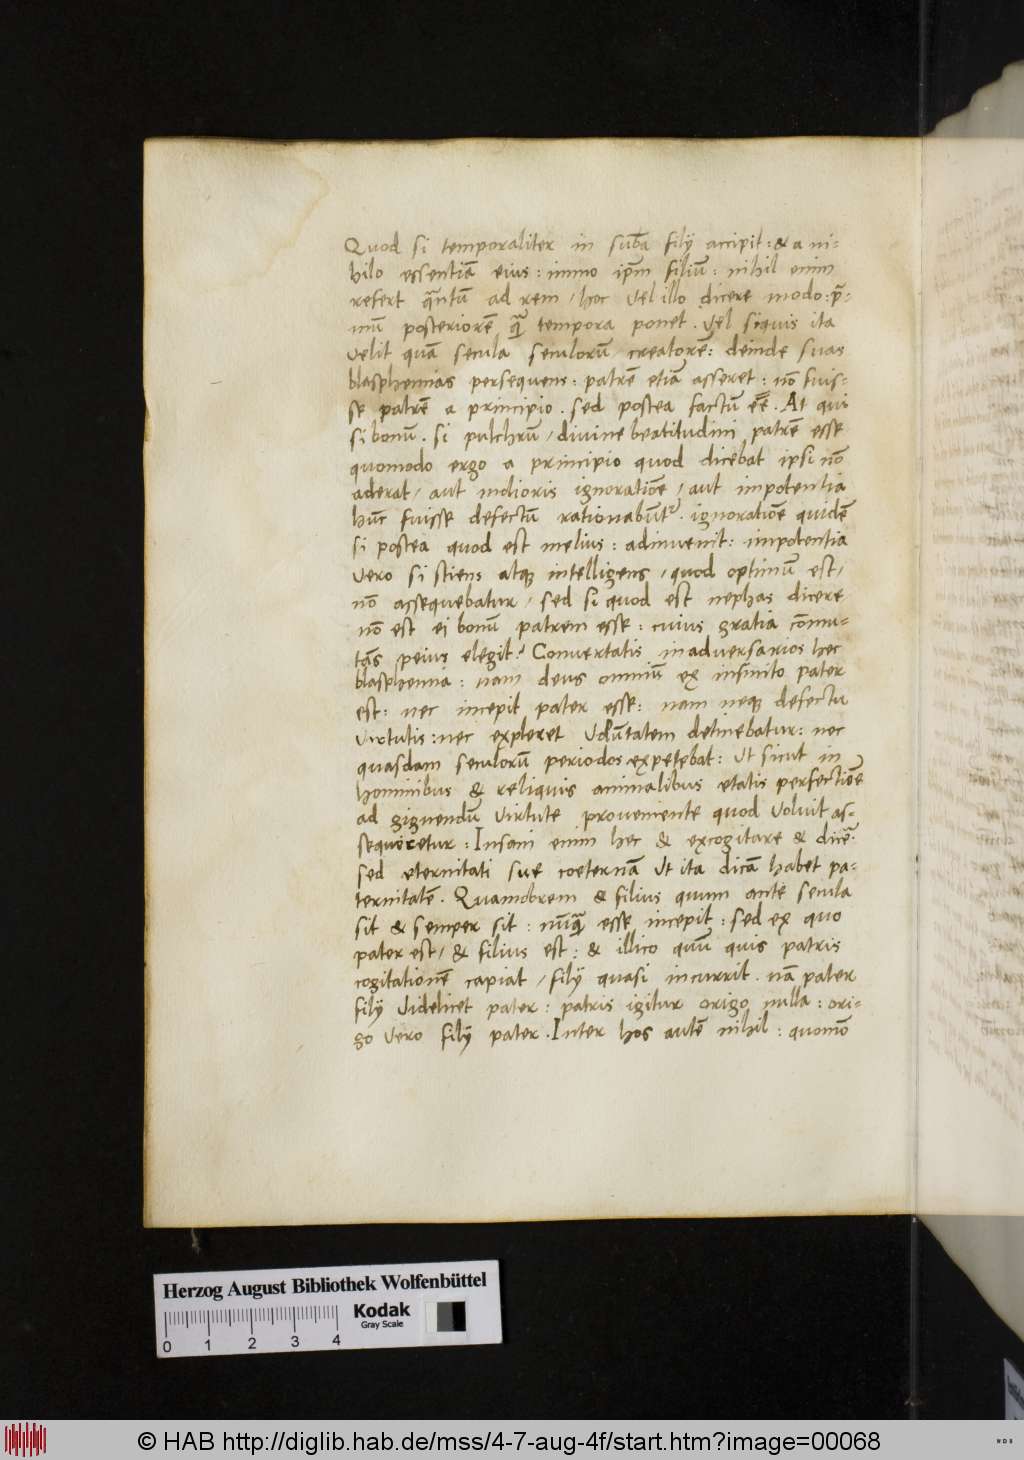 Quod si temporaliter in subã filij accipit : & a ni-
hilo essentiã eius : immo ip̃m filiũ : nihil enim
refert quãtũ ad rem / hoc vel illo dicere modo : pri-
mũ posteriorẽ quã tempora ponet . Vel siquis ita
velit quã secula seculorũ creatorẽ : deinde suas
blasphemias persequens : patrẽ etiã asseret : nõ fuis-
se patrẽ a principio . sed postea factũ eẽ . At qui
si bonũ . si pulchrũ / divine beatitudini patrẽ esse
quomodo ergo a principio quod dicebat ipsi nõ
aderat / aut melioris ignoratiõe / aut impotentia
hũc fuisse defectũ rationabũt᷑ . ignoratiõe quidẽ
si postea quod est melius : adinvenit : impotentia
vero si sciens atq; intelligens / quod optimũ est /
nõ assequebatur / sed si quod est nephas dicere
nõ est ei bonũ patrem esse : cuius gratia cõmu-
tãs peius elegit ? Convertatis in adversarios hec
blasphemia : nam deus omniũ ex infinito pater
est : nec incepit pater esse : nam neq; defectu
virtutis : nec expleret volũtatem detinebatur : nec
quasdam seculorũ periodos expetebat : Ut sicut in
hominibus & reliquis animalibus etatis perfectiõe
ad gignendũ virtute proveniente quod voluit as-
sequeretur : Insani enim hec & excogitare & dicẽ .
sed eternitati sue coeternã ut ita dicã habet pa-
ternitatẽ . Quamobrem & filius quum ante secula
sit & semper sit : nũquã esse incepit : sed ex quo
pater est / & filius est : & illico quũ quis patris
cogitationẽ capiat / filij quasi incurrit . nã pater
filij videlicet pater : patris igitur origo nulla : ori-
go vero filij pater . Inter hos autẽ nihil : quomõ
Herzog August Bibliothek Wolfenbüttel
Kodak
Gray Scale
0 1 2 3 4
© HAB http://diglib.hab.de/mss/4-7-aug-4f/start.htm?image=00068